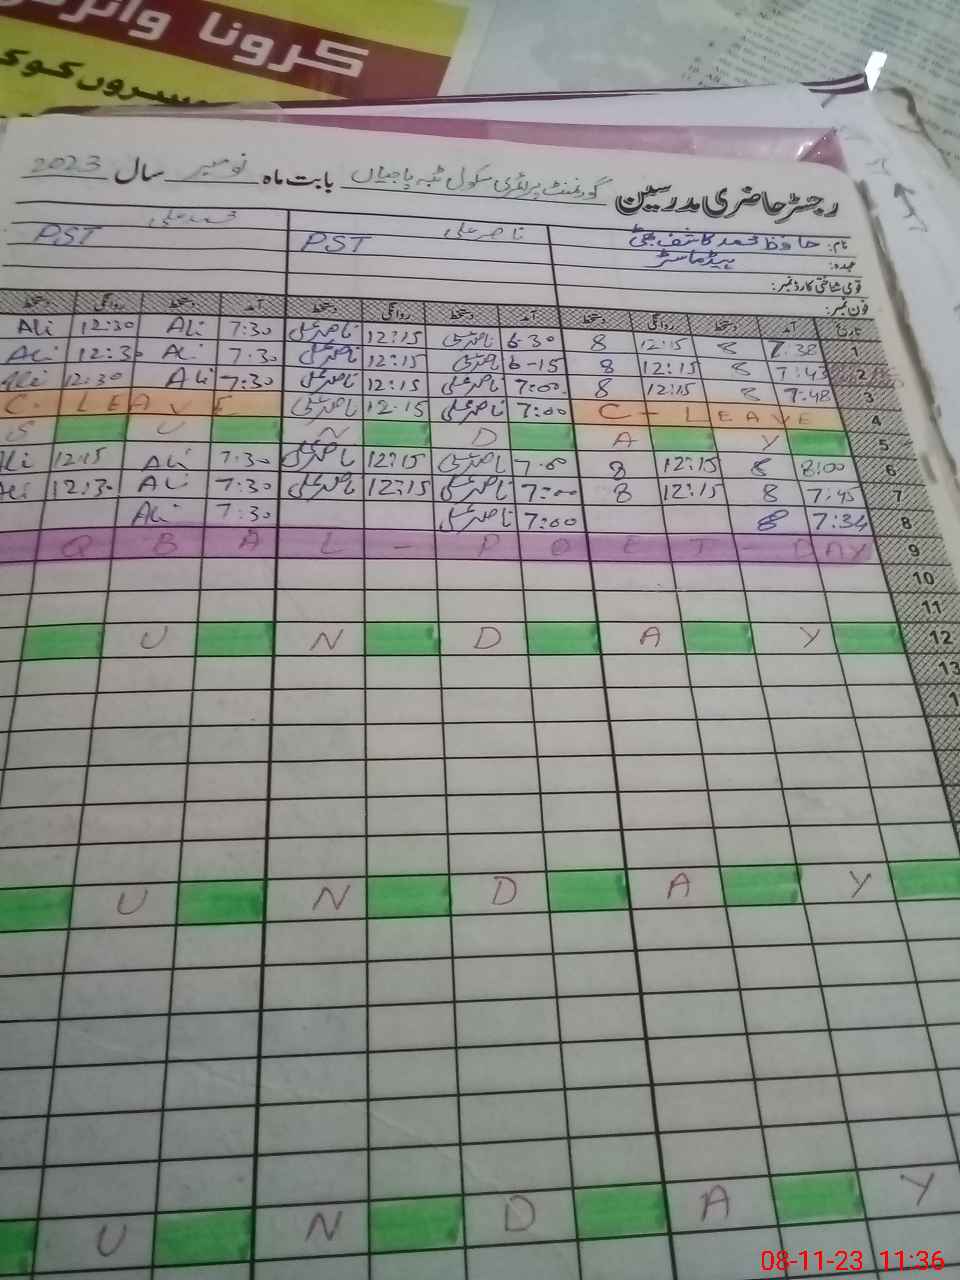 کرونا وائرس
رجسٹر حاضری مدرسین گورنمنٹ پرائمری سکول بابت ماہ نومبر سال 2023
نام: حافظ محمد کاشف ناصر علی محمد علی
عہدہ: ہیڈماسٹر PST PST
قومی شناختی کارڈ نمبر:
فون نمبر:
تاریخ آمد دستخط روانگی دستخط آمد دستخط روانگی دستخط آمد دستخط روانگی دستخط
1 7:38 8 12:15 8 6-30 ناصر علی 12:15 ناصر علی 7:30 Ali 12:30 Ali
2 7:43 8 12:15 8 6-15 ناصر علی 12:15 ناصر علی 7:30 Ali 12:30 Ali
3 7:48 8 12:15 8 7:00 ناصر علی 12:15 ناصر علی 7:30 Ali 12:30 Ali
4 C-LEAVE 7:00 ناصر علی 12:15 ناصر علی C-LEAVE
5 S U N D A Y
6 8:00 8 12:15 8 7:00 ناصر علی 12:15 ناصر علی 7:30 Ali 12:15 Ali
7 7:45 8 12:15 8 7:00 ناصر علی 12:15 ناصر علی 7:30 Ali 12:30 Ali
8 7:34 8 7:00 ناصر علی 7:30 Ali
9 QBAL-POET-DAY
10
11
12 U N D A Y
13
U N D A Y
U N D A Y
08-11-23 11:36